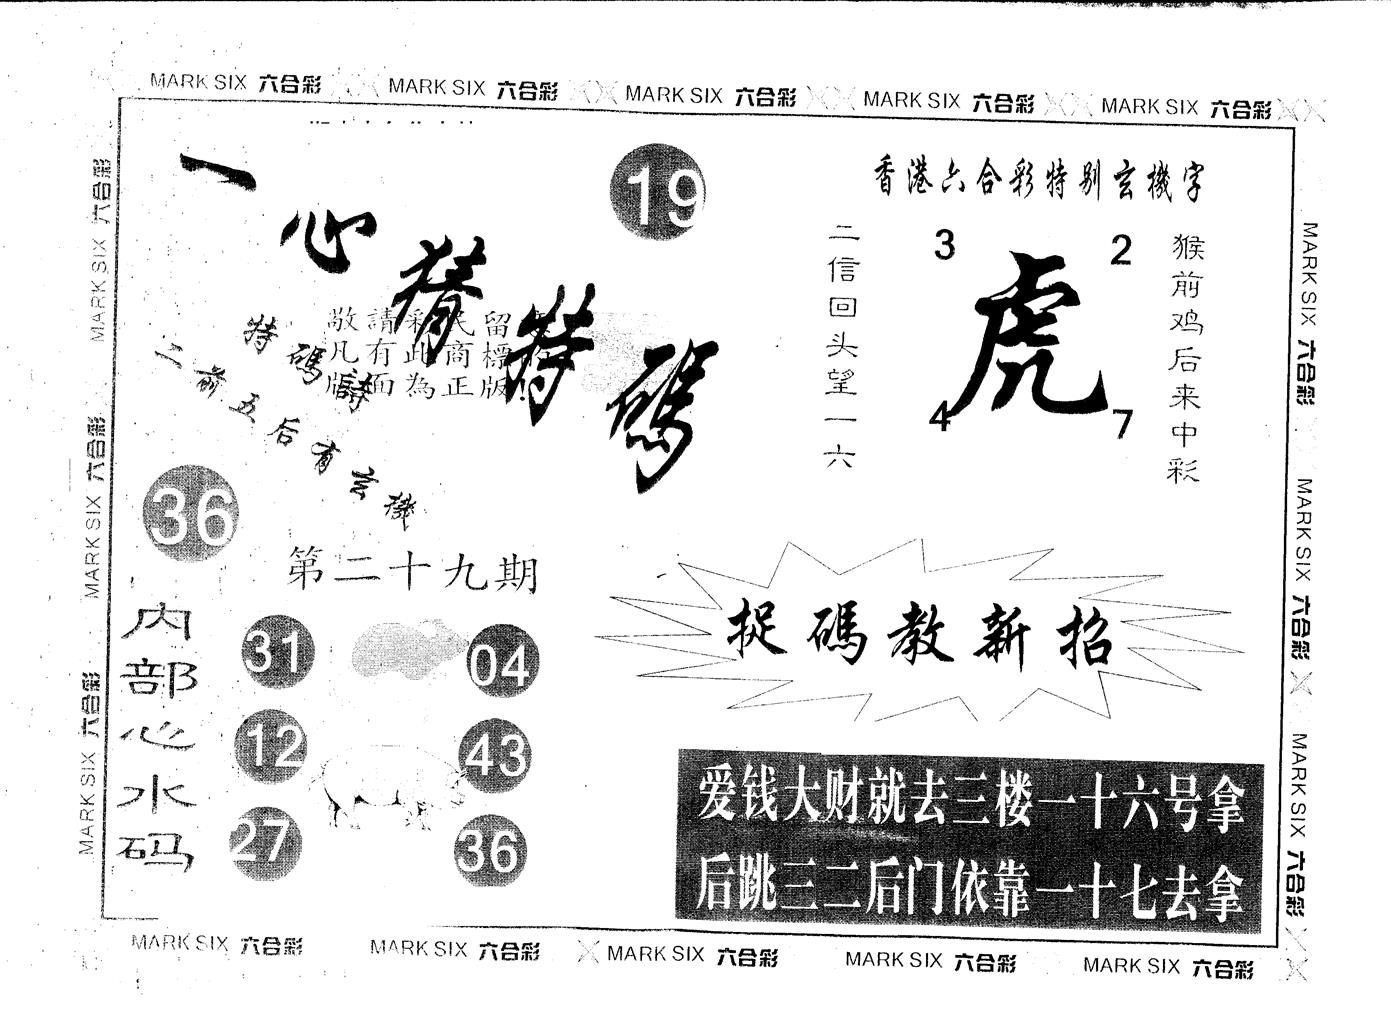 MARK SIX 六合彩 MARK SIX 六合彩 MARK SIX 六合彩 MARK SIX 六合彩 MARK SIX 六合彩
一心猜特碼
19
敬請彩民留
凡有此商標
版面為正版!
特碼詩
二前五后有玄機
36
第二十九期
内部心水码
31
04
12
43
27
36
香港六合彩特别玄機字
二信回头望一六
3
2
虎
4
7
猴前鸡后来中彩
捉碼教新招
爱钱大财就去三楼一十六号拿
后跳三二后门依靠一十七去拿
MARK SIX 六合彩
MARK SIX 六合彩
MARK SIX 六合彩
MARK SIX 六合彩
MARK SIX 六合彩
MARK SIX 六合彩
MARK SIX 六合彩 MARK SIX 六合彩 MARK SIX 六合彩 MARK SIX 六合彩 MARK SIX 六合彩